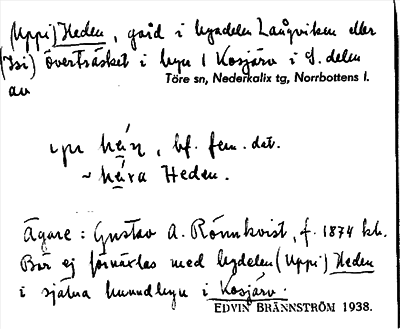 (Uppi) Heden, gård i bydelen Långviken eller
(Isi) överträsket i byn 1 Kosjärv i S. delen
av Töre sn, Nederkalix tg, Norrbottens l.
, bf. fem. dat.
~ Heden.
Ägare: Gustav A. Rönnkvist, f. 1874 kh.
Bör ej förväxlas med bydelen (Uppi) Heden
i själva huvudbyn i Kosjärv.
EDVIN BRÄNNSTRÖM 1938.